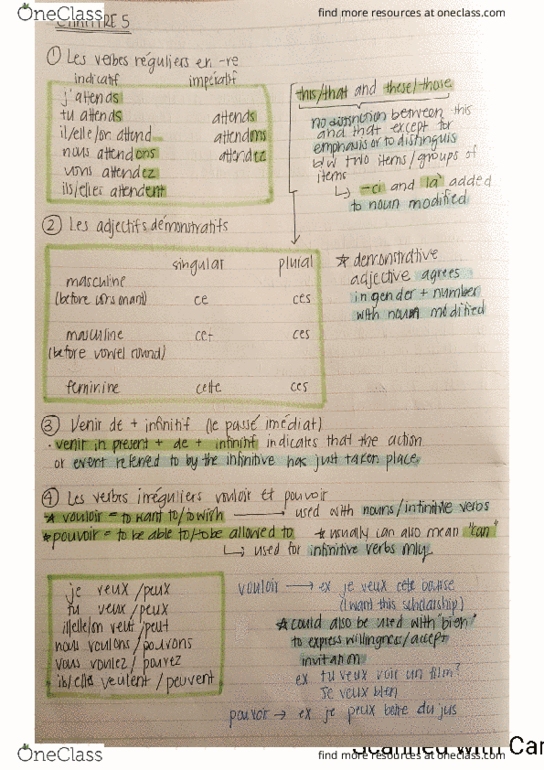 OneClass
find more resources at oneclass.com
CHAPITRE 5
① Les verbes réguliers en -re
indicatif impératif
j'attends
tu attends attends
il/elle/on attend_ attendons
nous attendons attendez
vous attendez
ils/elles attendent
this/that and these/those
no distinction between this
and that except for
emphasis or to distinguis
b/w two items/groups of
items
↳ -ci and là added
to noun modified
② Les adjectifs démonstratifs
singular plural
masculine
(before consonant) ce ces
masculine cet ces
(before vowel sound)
feminine cette ces
* demonstrative
adjective agrees
in gender + number
with noun modified
③ Venir de + infinitif (le passé imédiat)
· venir in present + de + infinitif indicates that the action
or event referred to by the infinitive has just taken place
④ Les verbes irréguliers vouloir et pouvoir
* vouloir = to want to/to wish → used with nouns/infinitive verbs
* pouvoir = to be able to/to be allowed to * usually can also mean "can"
↳ used for infinitive verbs only
je veux/peux
tu veux/peux
il/elle/on veut/peut
nous voulons/pouvons
vous voulez/pouvez
ils/elles veulent/peuvent
vouloir → ex je veux cete bourse
(I want this scholarship)
* could also be used with "bien"
to express willingness/accept
invitation
ex tu veux voir un film?
Je veux bien
pouvoir → ex je peux boire du jus
Scanned with Car
OneClass
find more resources at oneclass.com